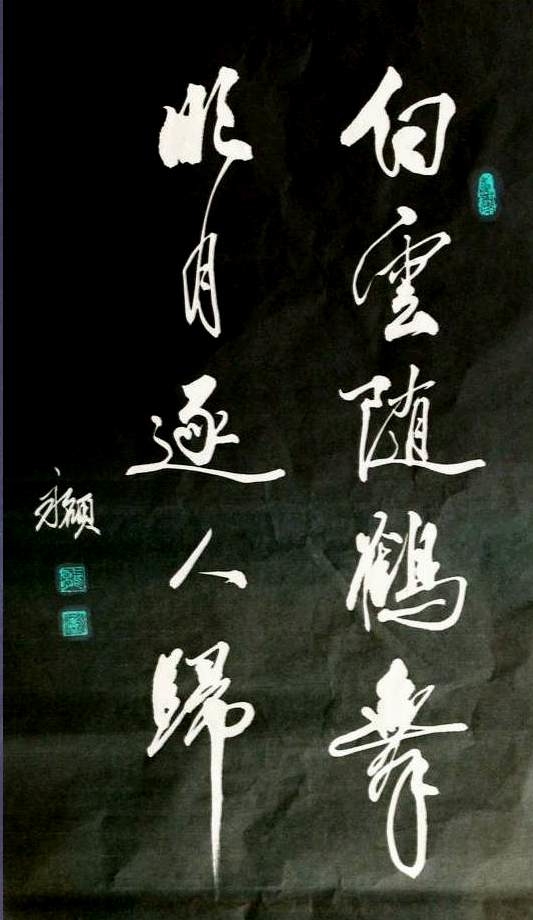 白雲随鶴舞
明月逐人歸
永碩